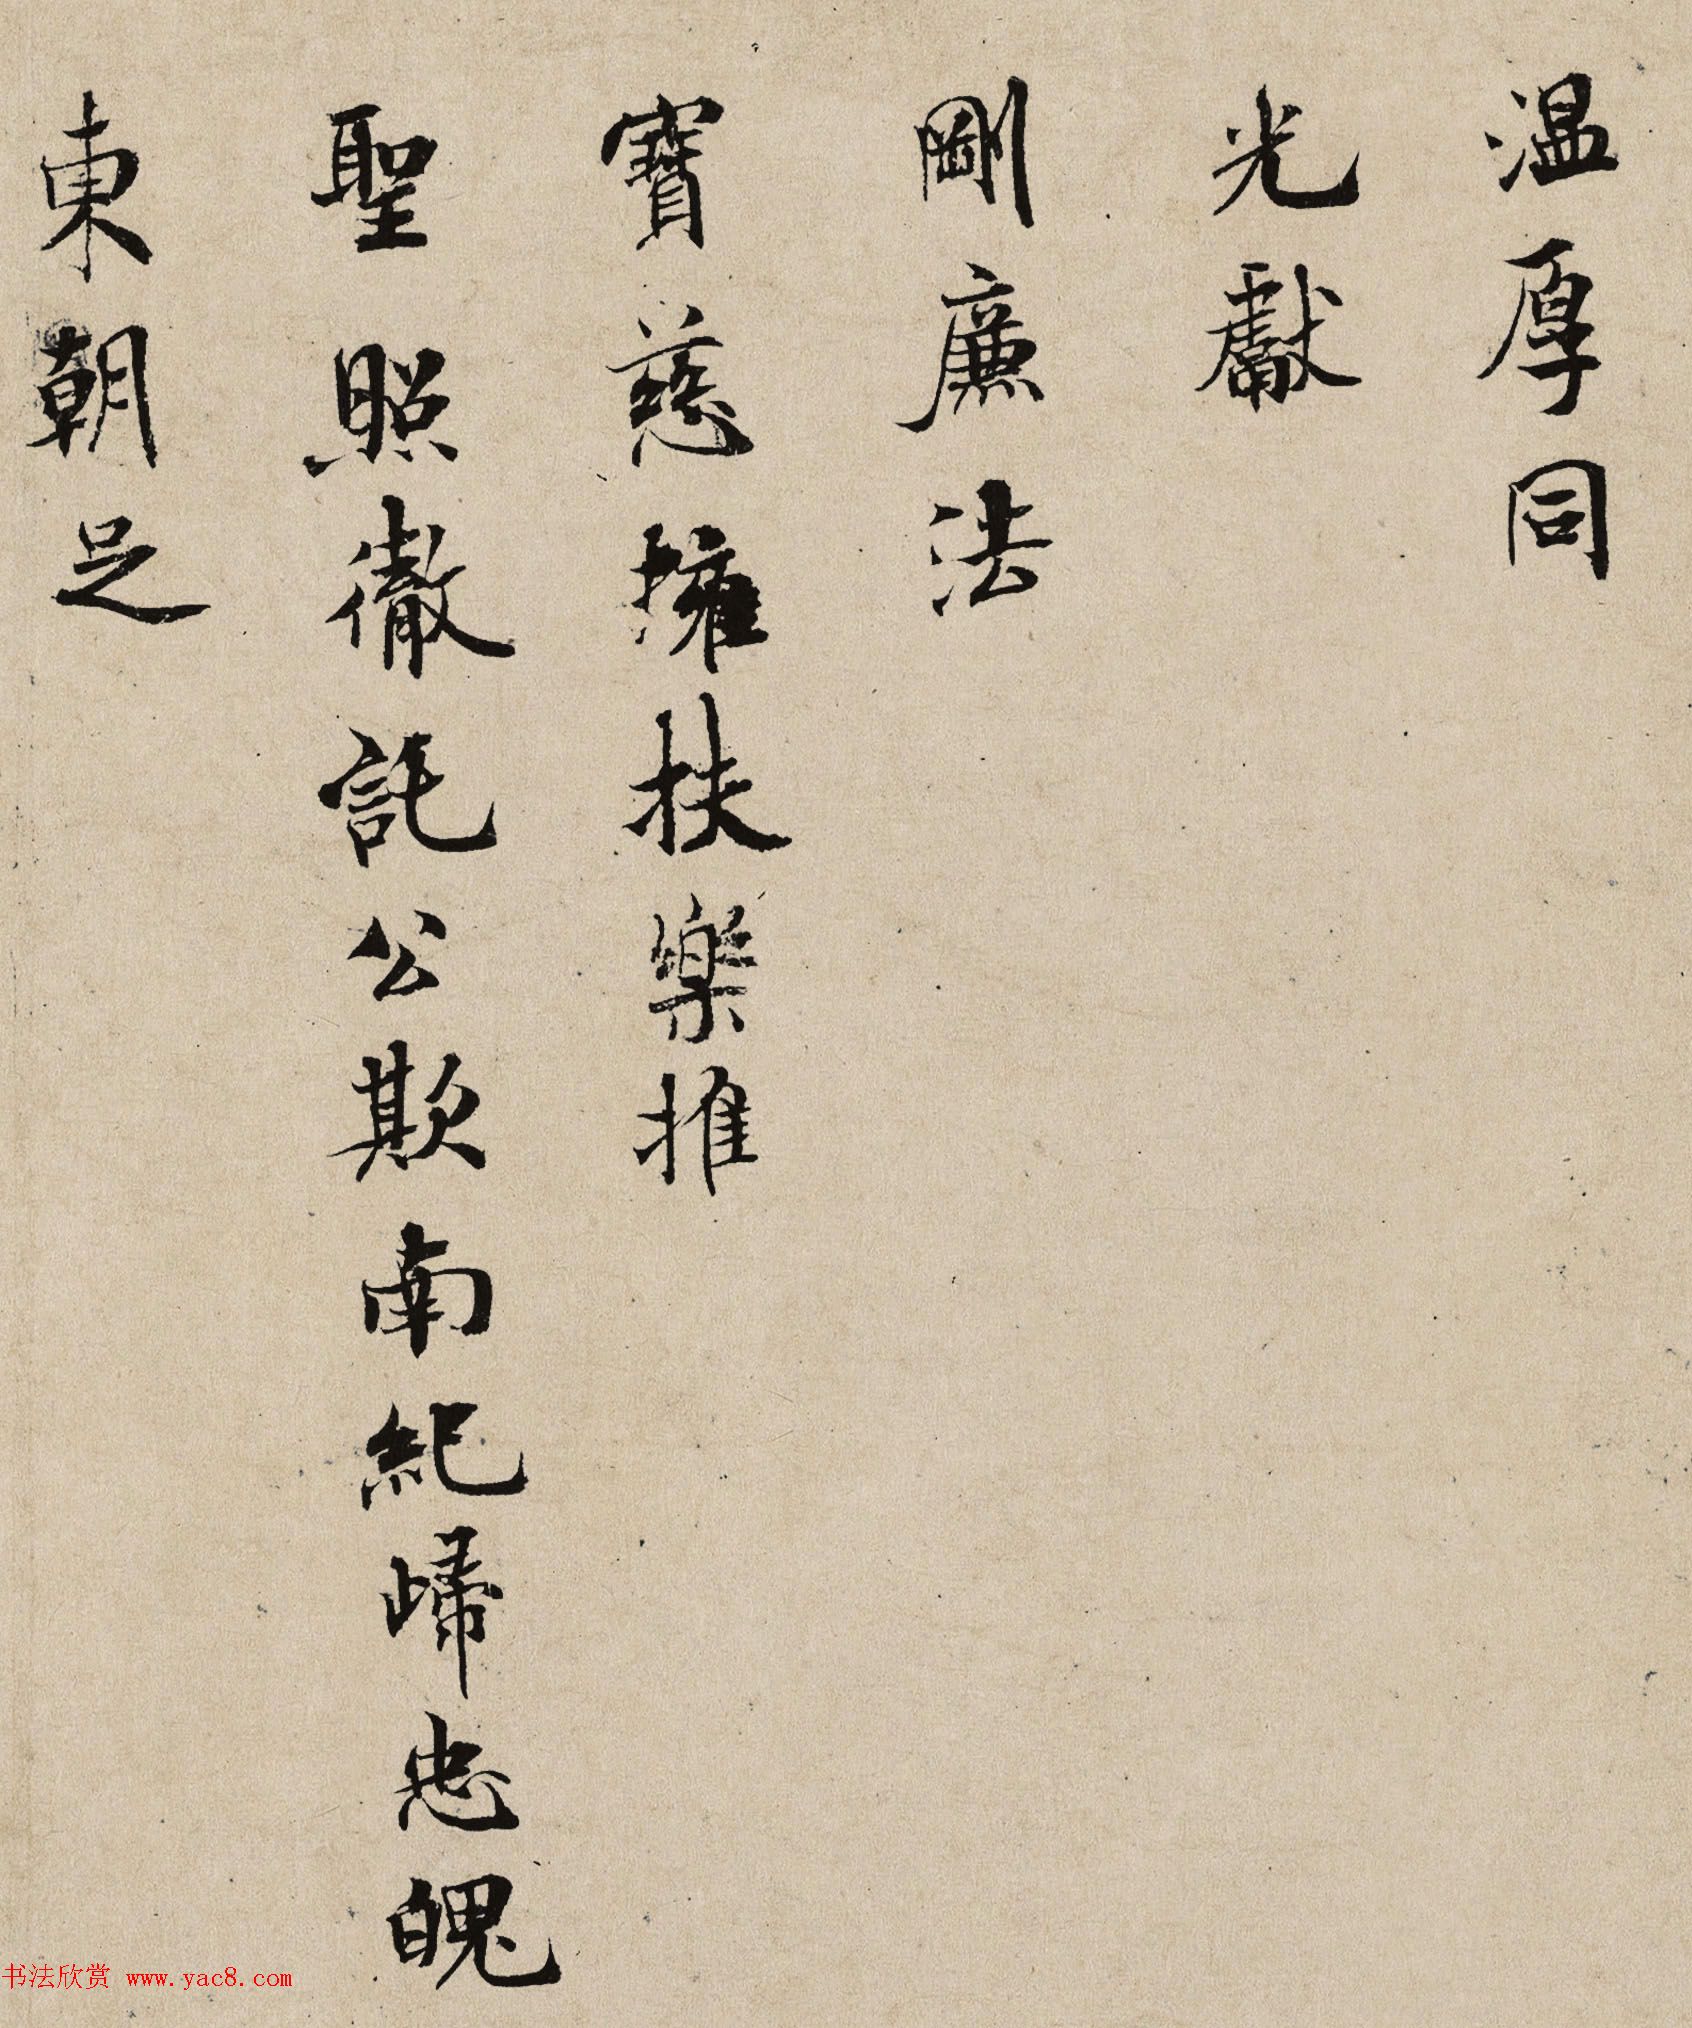 温厚同
光獻
剛廉法
寶慈擁扶樂推
聖照徹託公欺南紀歸忠魄
東朝足
书法欣赏 www.yac8.com